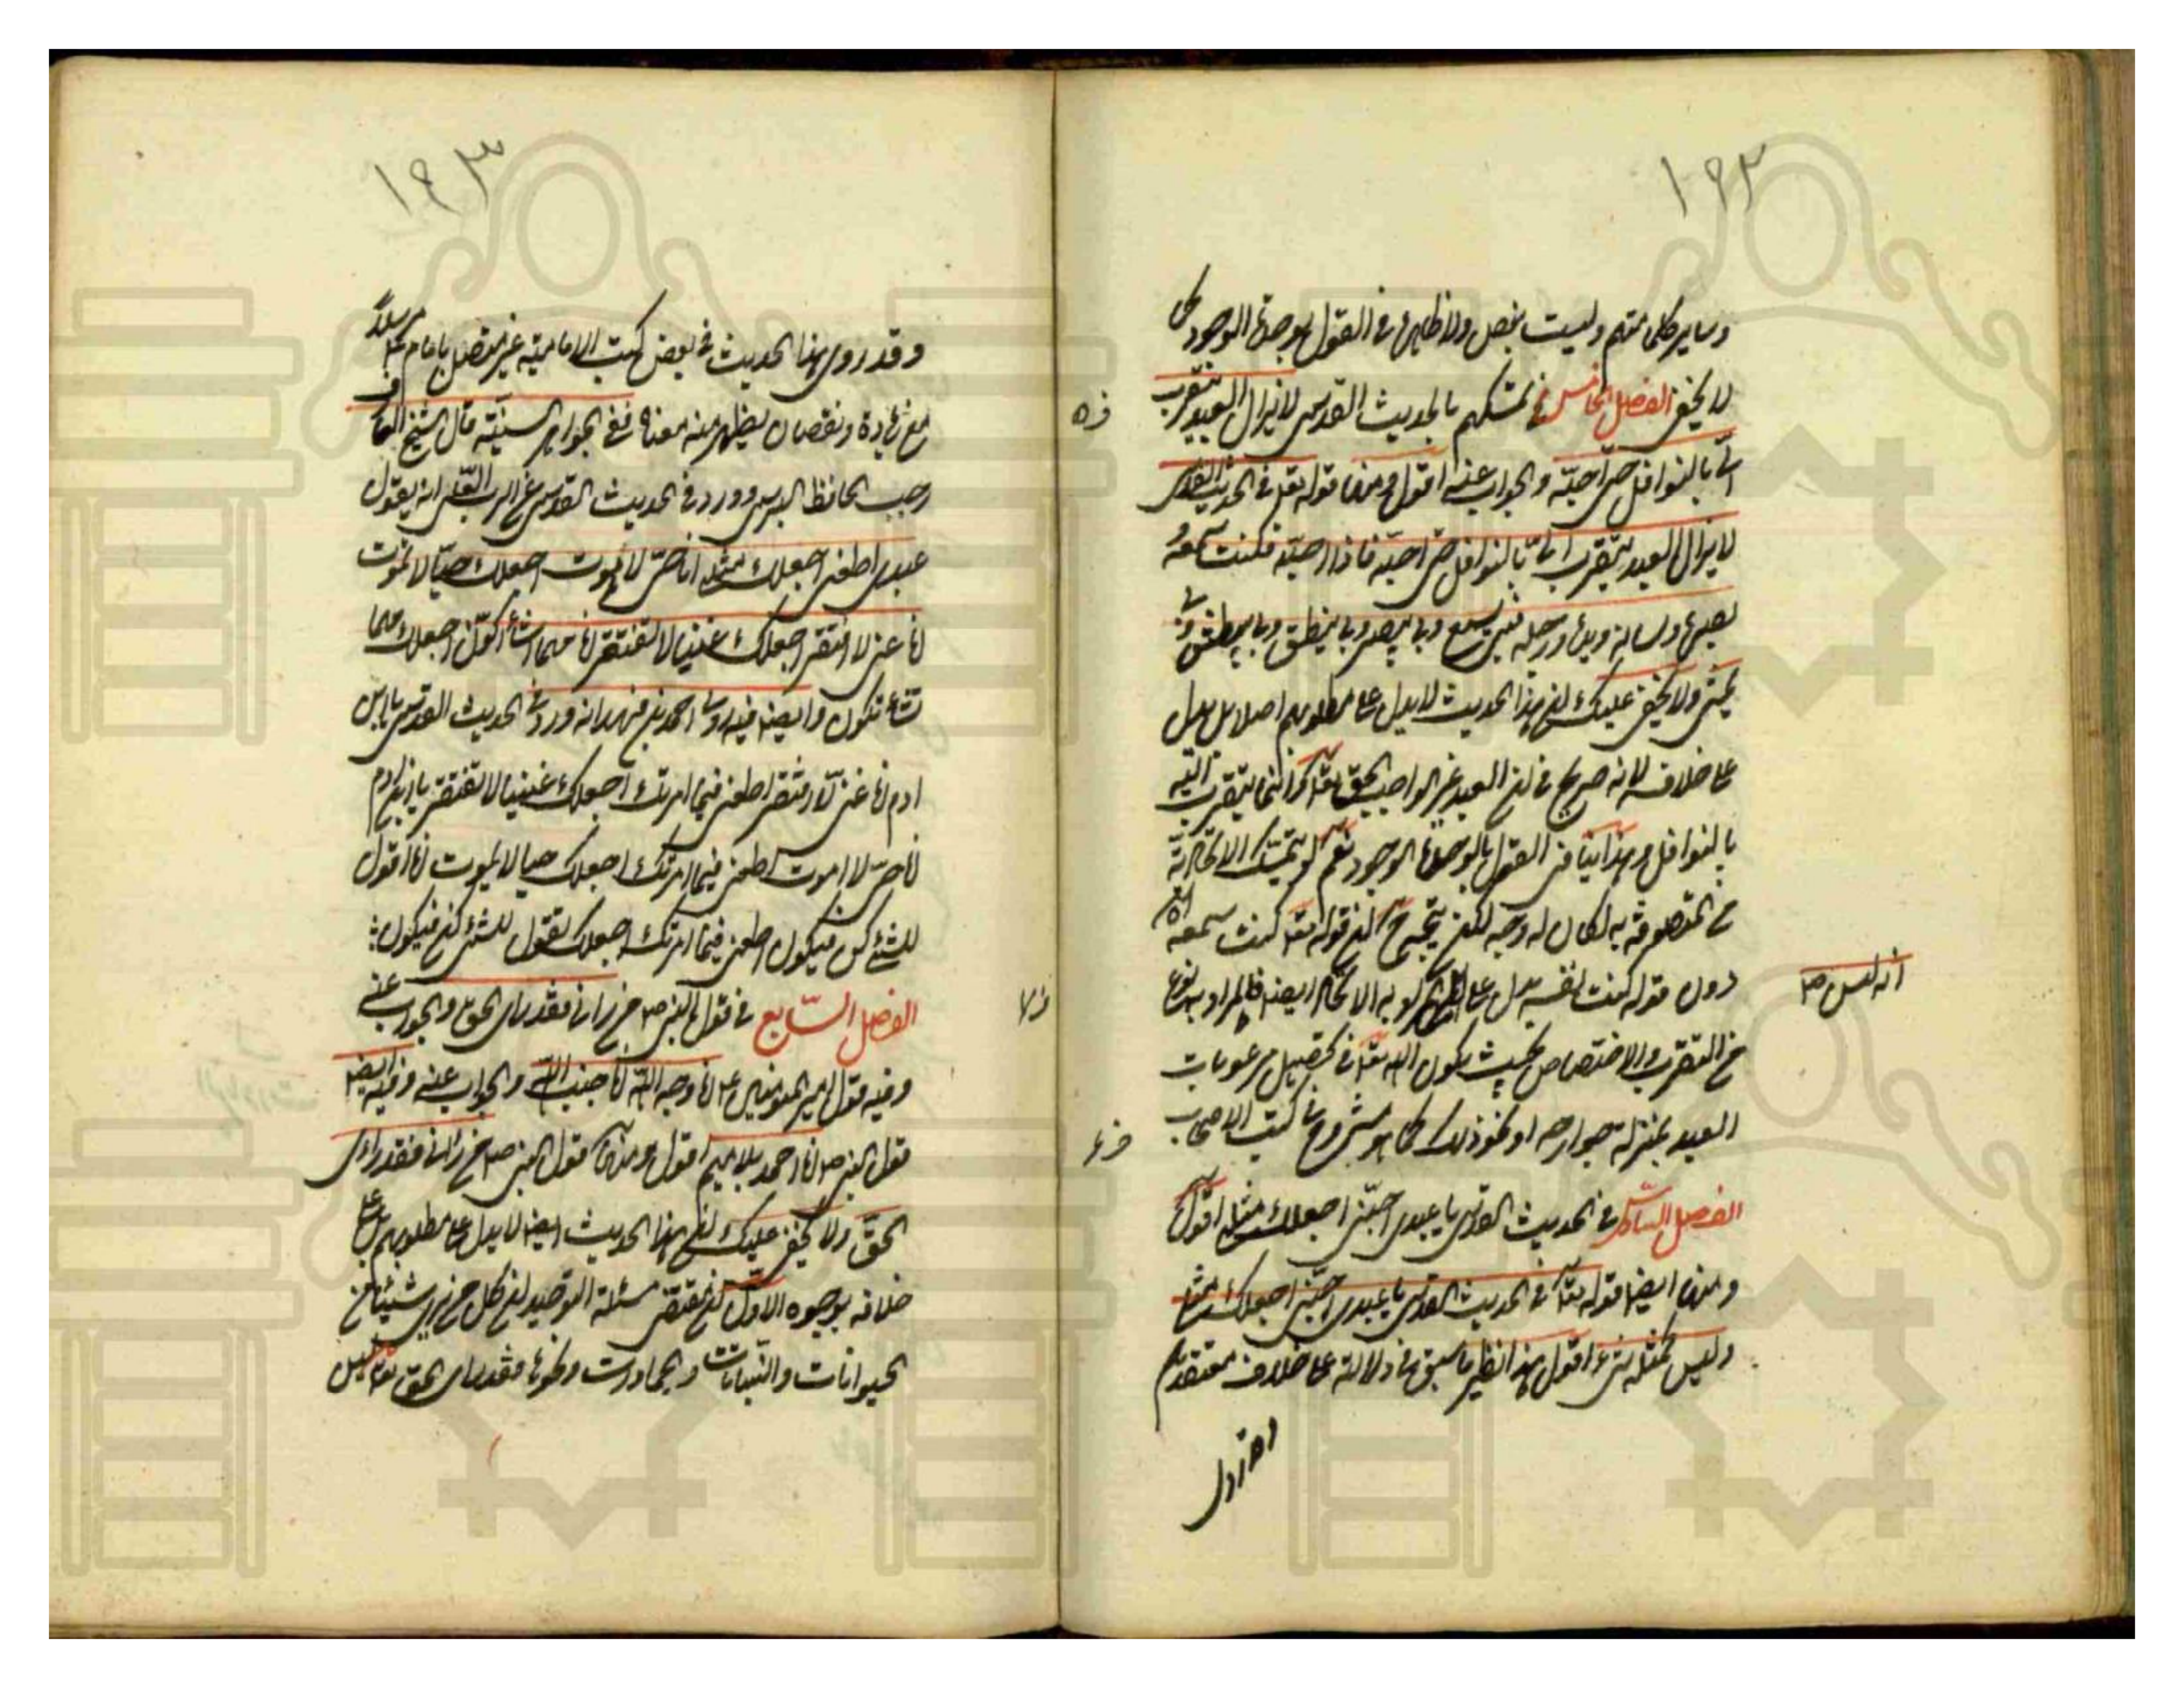 ١٩٢
وساير كلماتهم وليست بنص ولا ظاهرة في القول بوحدة الوجود كما
لا يخفى الفصل الخامس في تمسكهم بالحديث القدسي لا يزال العبد يتقرب
الىّ بالنوافل حتى احبّه والجواب عنه اقول ومنها قوله تعالى في الحديث القدسى
لا يزال العبد يتقرب الىّ بالنوافل حتى احبّه فاذا احببته فكنت سمعه
بصره ولسانه ويده ورجله فبى يسمع وبى يبصر وبى ينطق وبى يبطش وبى
يمشى ولا يخفى عليك ان هذا الحديث لا يدل على مطلوبهم اصلا بل يدل
على خلافه لانه صريح في ان العبد غير الواجب الحق تعالى وانما يتقرب اليه
بالنوافل وهذا ينافى القول بالوحدة الوجود نعم لو تمسك الاتحادية
من المتصوفة به لكان له وجه لكن يتجه ح ان قوله تعالى كنت سمعه
انه ليس ص
دون قوله كنت نفسه يدل على المراد به الاتحاد ايضا فالمراد به نوع
من التقرب والاختصاص بحيث يكون الله تعالى في تحصيل مرغوبات
العبد بمنزلة جوارحه او نحو ذلك كما هو مشروح في كتب الاصحاب
الفصل السادس في الحديث القدسى يا عبدى احبّنى اجعلك مثلى اقول
ومنها ايضا قوله تعالى في الحديث القدسى يا عبدى احبّنى اجعلك مثلى
وليس كمثله شىء اقول هذا نظير ما سبق في دلالة على خلاف معتقدهم
ف ٥
ف ٦
١٩٣
وقد روى هذا الحديث في بعض كتب الامامية غير متصل بامام ع مرسلاً
مع زيادة ونقصان يظهر منه معناه ففى الجواهر السنيّة قال الشيخ
رجب الحافظ البرسى وورد في الحديث القدسى عن الرب العلى انه يقول
عبدى اطعنى اجعلك مثلى انا حىّ لا اموت اجعلك حيّا لا تموت
انا غنى لا افتقر اجعلك غنيا لا تفتقر انا مهما اشأ اكوّن اجعلك مهما
تشاء تكون وايضا فيه روى احمد بن فهد انه ورد في الحديث القدسى يا ابن
ادم انا غنىّ لا افتقر اطعنى فيما امرتك اجعلك غنيا لا تفتقر يا ابن ادم
انا حىّ لا اموت اطعنى فيما امرتك اجعلك حيا لا يموت انا اقول
للشئ كن فيكون اطعنى فيما امرتك اجعلك تقول للشئ كن فيكون
الفصل السّابع في قول النبى ص من رانى فقد راى الحق والجواب عنه
ف ٧
وفيه قول امير المؤمنين ع انا وجه الله انا جنب الله والجواب عنه وفيه ايضا
قول النبى ص انا احمد بلا ميم اقول ومنها قول النبى ص من رآنى فقد راى
الحقّ ولا يخفى عليك ان هذا الحديث ايضا لا يدل على مطلوبهم بل على
خلافه بوجوه الاول ان مقتضى مسئلة التوحيد ان كل من راى شيئا من
الحيوانات والنّباتات والجمادات ونحوها فقد راى الحق تعالى ليس